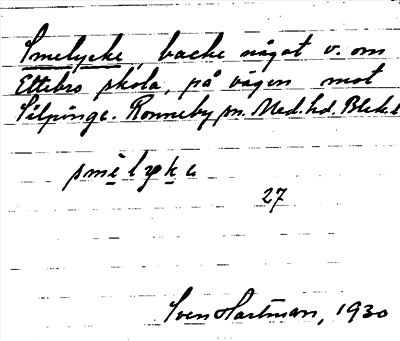 Smelycke, backe något v. om
Ettebro skola, på vägen mot
Silpinge. Ronneby sn. Med. hd. Blek.
smèlyke
27
Sven Hartman, 1930